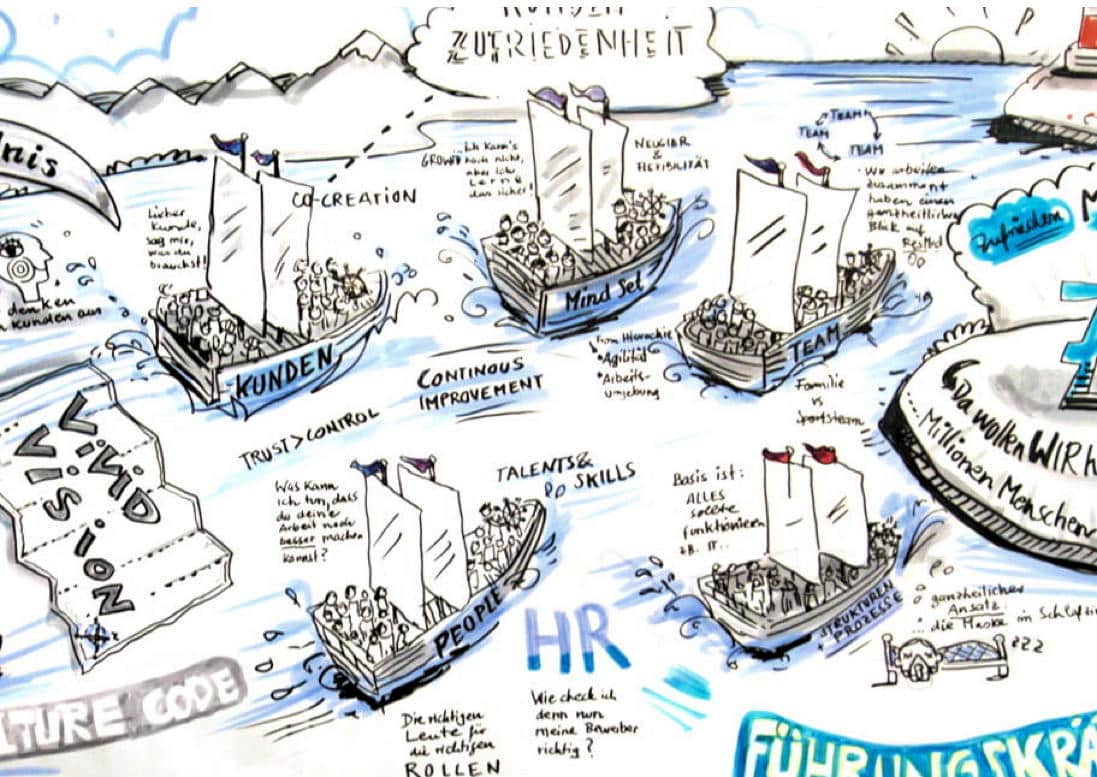 KUNDEN
ZUFRIEDENHEIT
nis
CO-CREATION
Lieber
Kunde,
sag mir,
was du
brauchst!
denken
Kunden aus
KUNDEN
GROWTH
Ich kann's
noch nicht,
aber ich
lerne
das sicher!
NEUGIER
&
FLEXIBILITÄT
Mind Set
TEAM
TEAM
TEAM
Wir arbeiten
zusammen +
haben einen
ganzheitlichen
Blick auf
ResMed
TEAM
zufrieden
Hierarchie
*Agilität
*Arbeits-
umgebung
Familie
vs
Sportsteam
CONTINOUS
IMPROVEMENT
TRUST > CONTROL
Da wollen WIR h
Millionen Menschen
VIND
VISION
Was kann
ich tun, dass
du deine
Arbeit noch
besser machen
kannst?
TALENTS &
SKILLS
PEOPLE
Basis ist:
ALLES
sollte
funktionieren
z.B. IT..
STRUKTUREN
PROZESSE
ganzheitlicher
Ansatz
die Maske im Schlaf
zzz
HR
Wie check ich
denn nun
meine Bewerber
richtig?
Die richtigen
Leute für
die richtigen
ROLLEN
LTURE CODE
FÜHRUNGSKRÄ